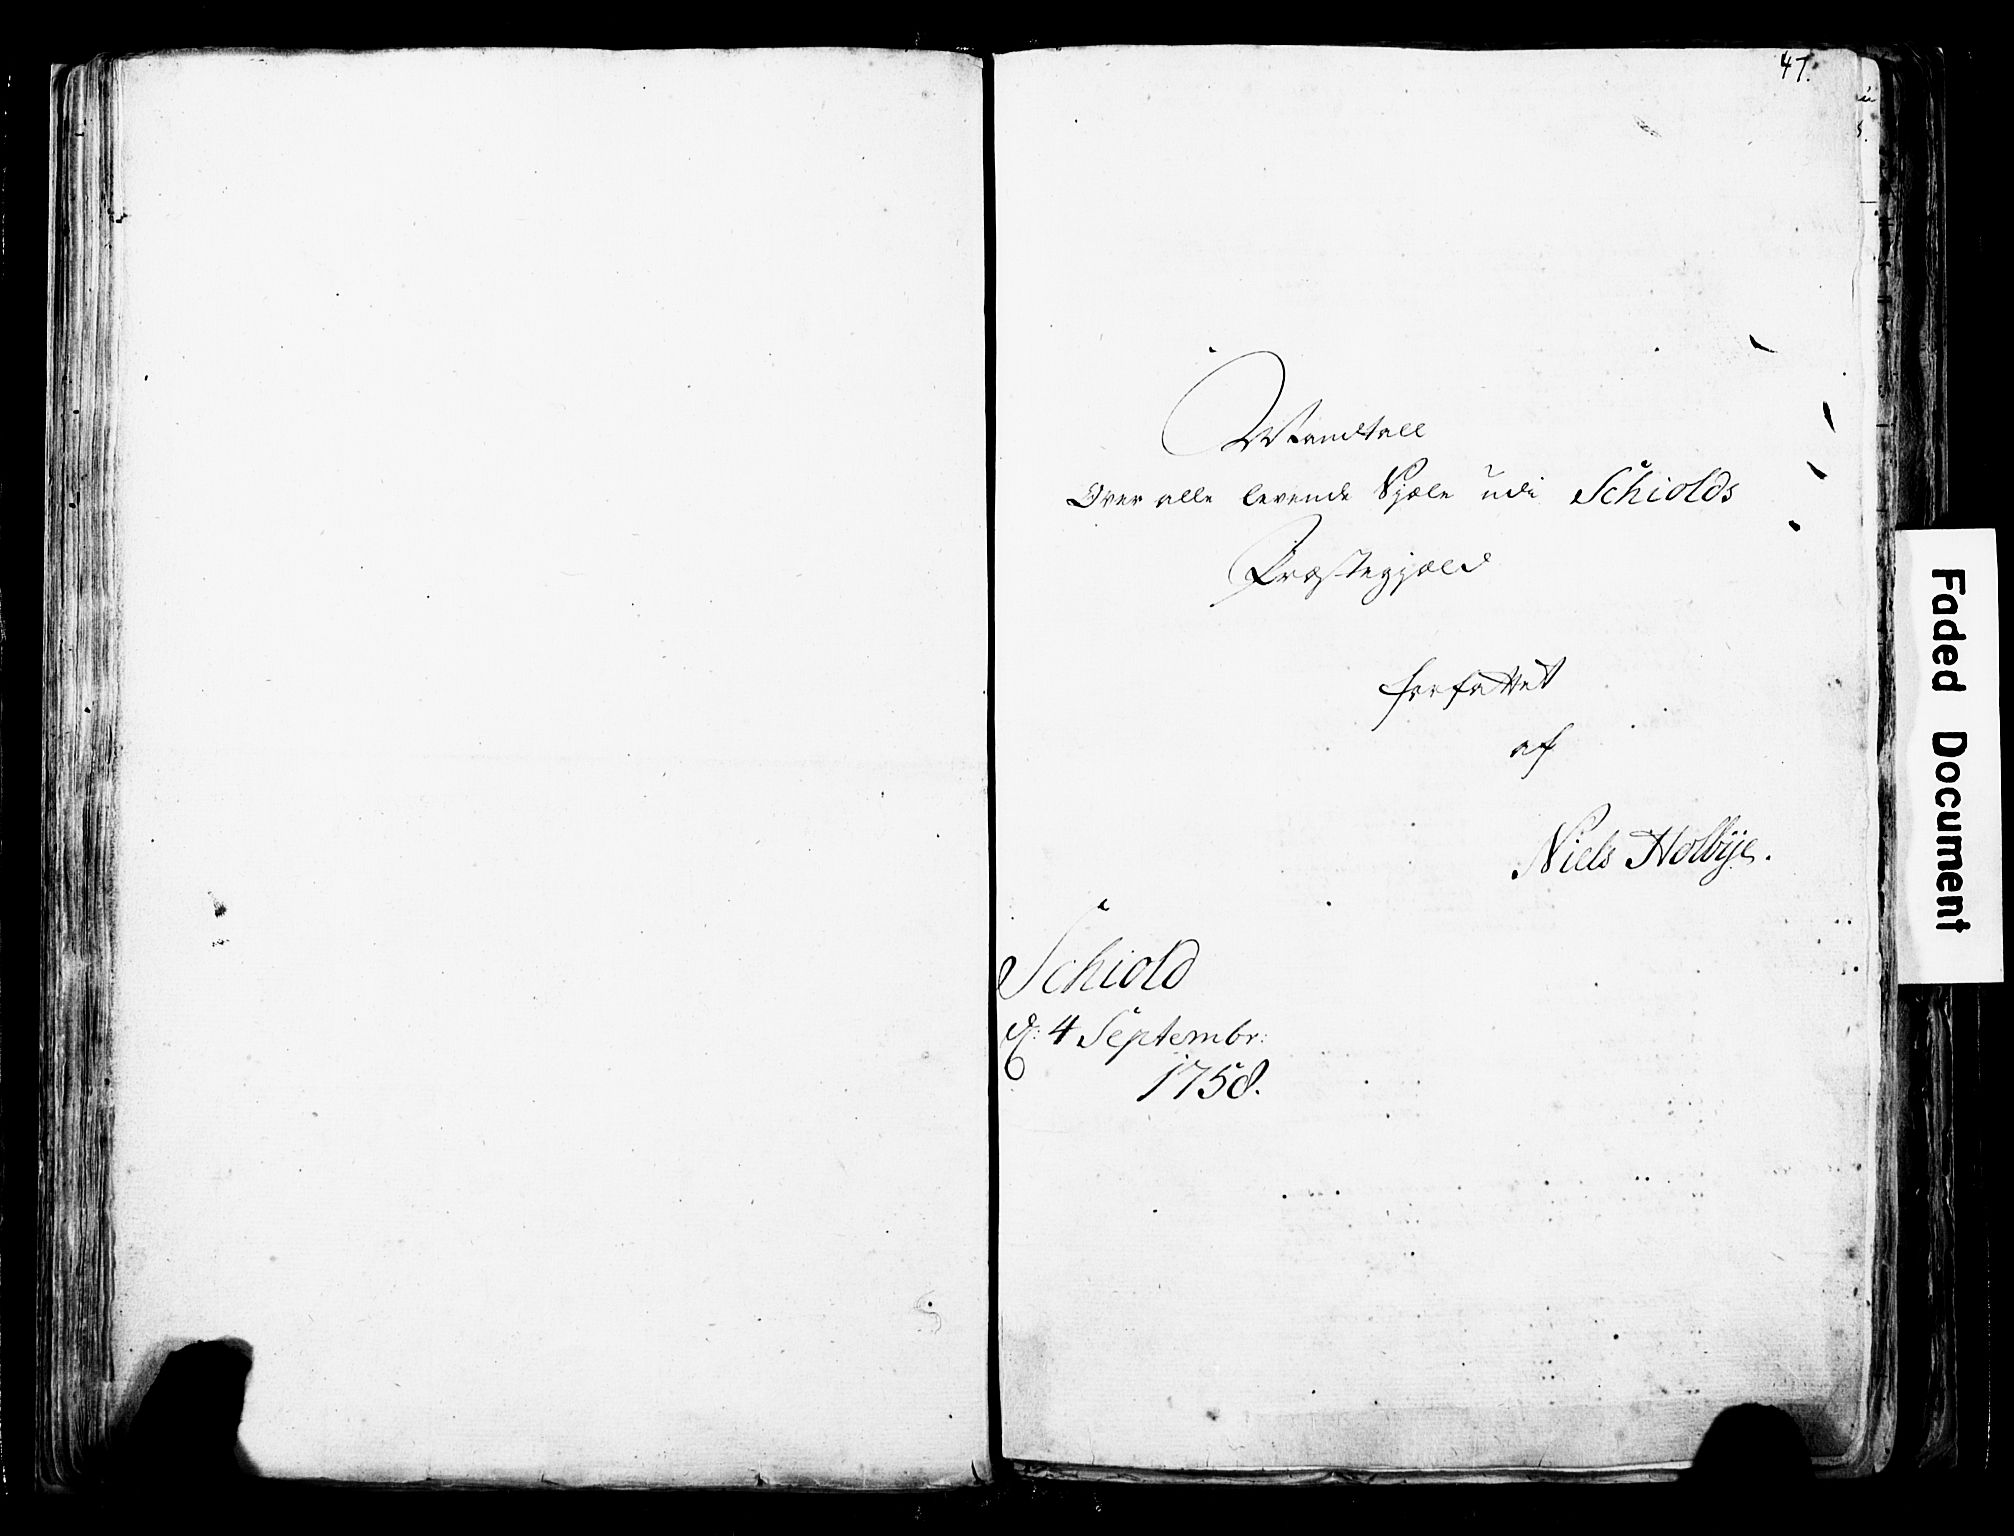 47.
Mandtall
Over alle levende Sjæle udi Schiolds
Præstegjæld
forfattet
af
Niels Holbye.
Schiold
d: 4 Septembr:
1758.
Faded Document